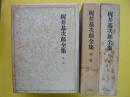 梶井基次郎全集
梶井基次郎全集